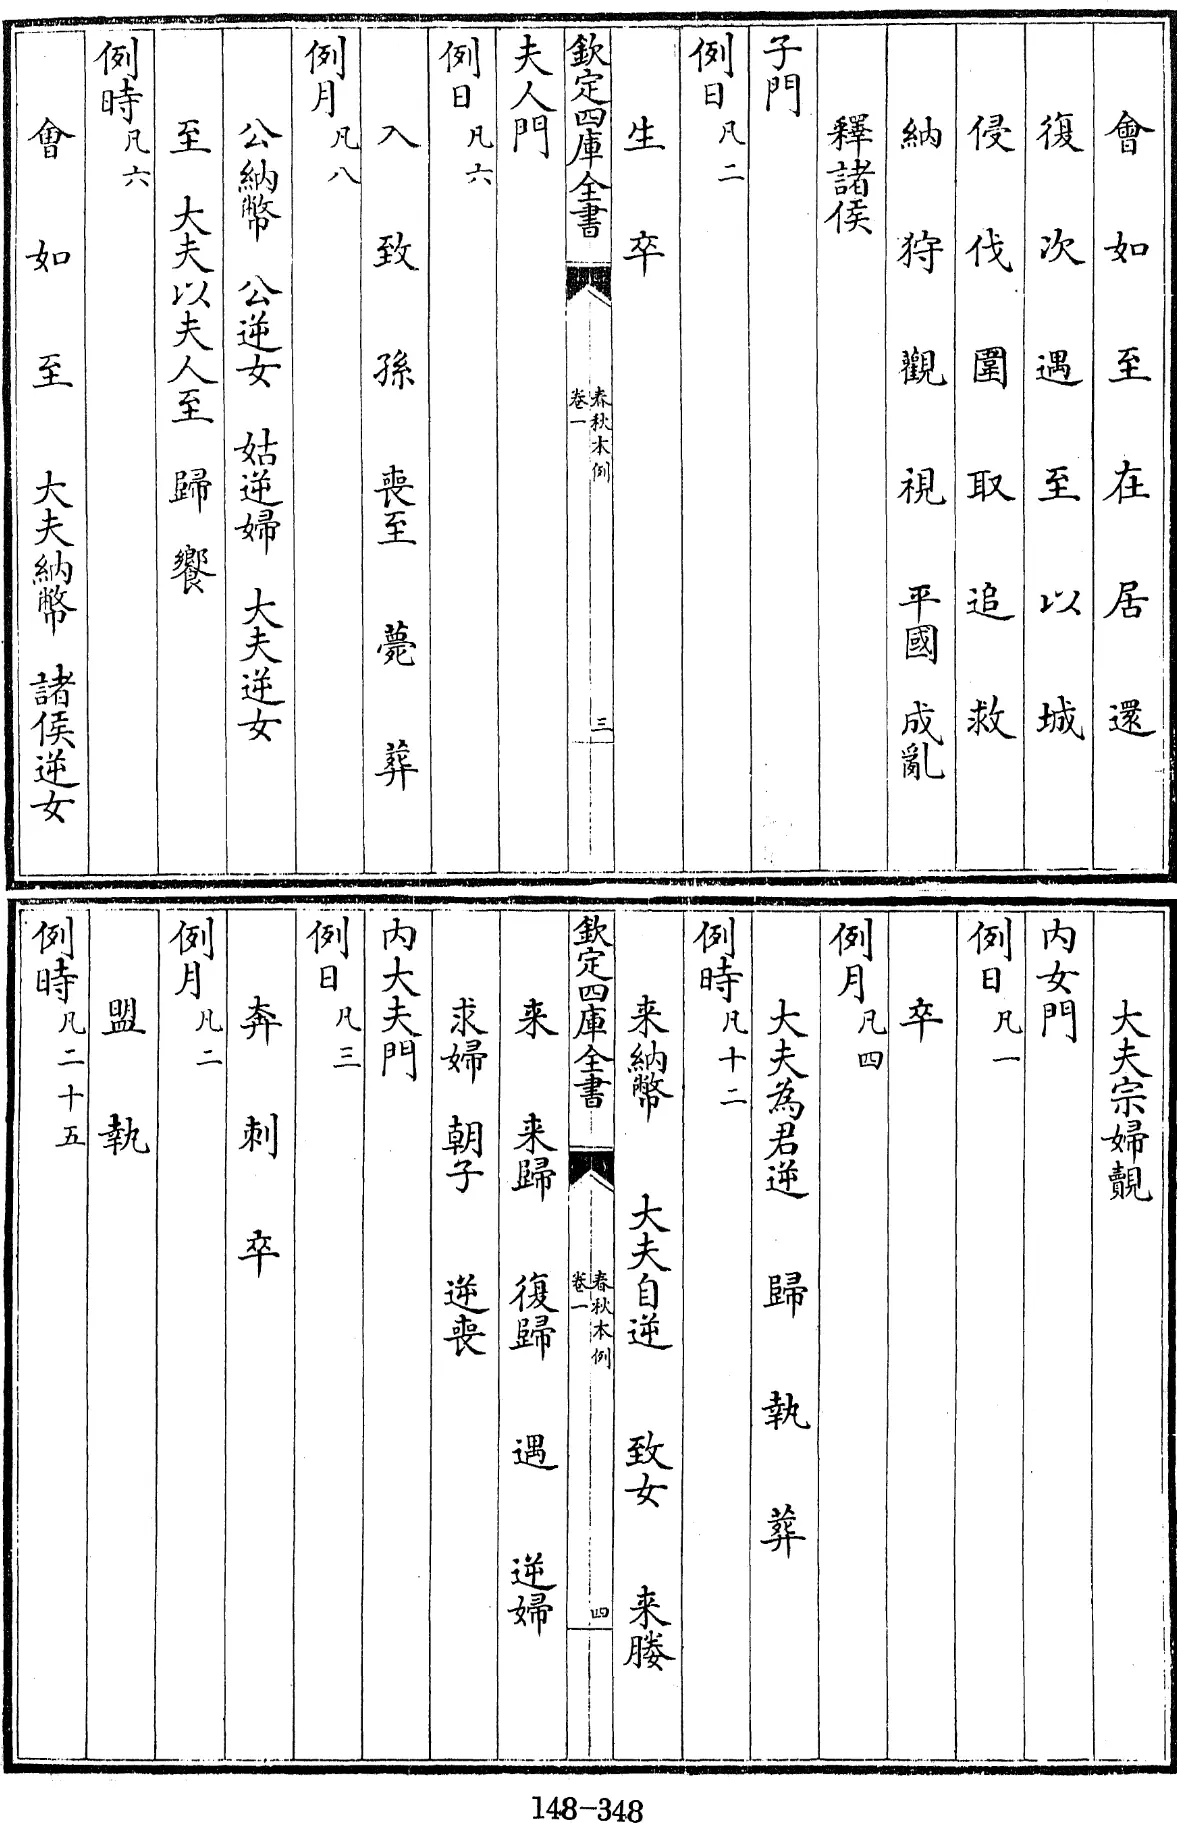 會 如 至 在 居 還
復 次 遇 至 以 城
侵 伐 圍 取 追 救
納 狩 觀 視 平國 成亂
釋諸侯
子門
例日凡二
生 卒
欽定四庫全書 春秋本例 卷一 三
夫人門
例日凡六
入 致 孫 喪至 薨 葬
例月凡八
公納幣 公逆女 姑逆婦 大夫逆女
至 大夫以夫人至 歸 饗
例時凡六
會 如 至 大夫納幣 諸侯逆女
大夫宗婦覿
内女門
例日凡一
卒
例月凡四
大夫為君逆 歸 執 葬
例時凡十二
来納幣 大夫自逆 致女 来媵
欽定四庫全書 春秋本例 卷一 四
来 来歸 復歸 遇 逆婦
求婦 朝子 逆喪
内大夫門
例日凡三
奔 刺 卒
例月凡二
盟 執
例時凡二十五
148-348